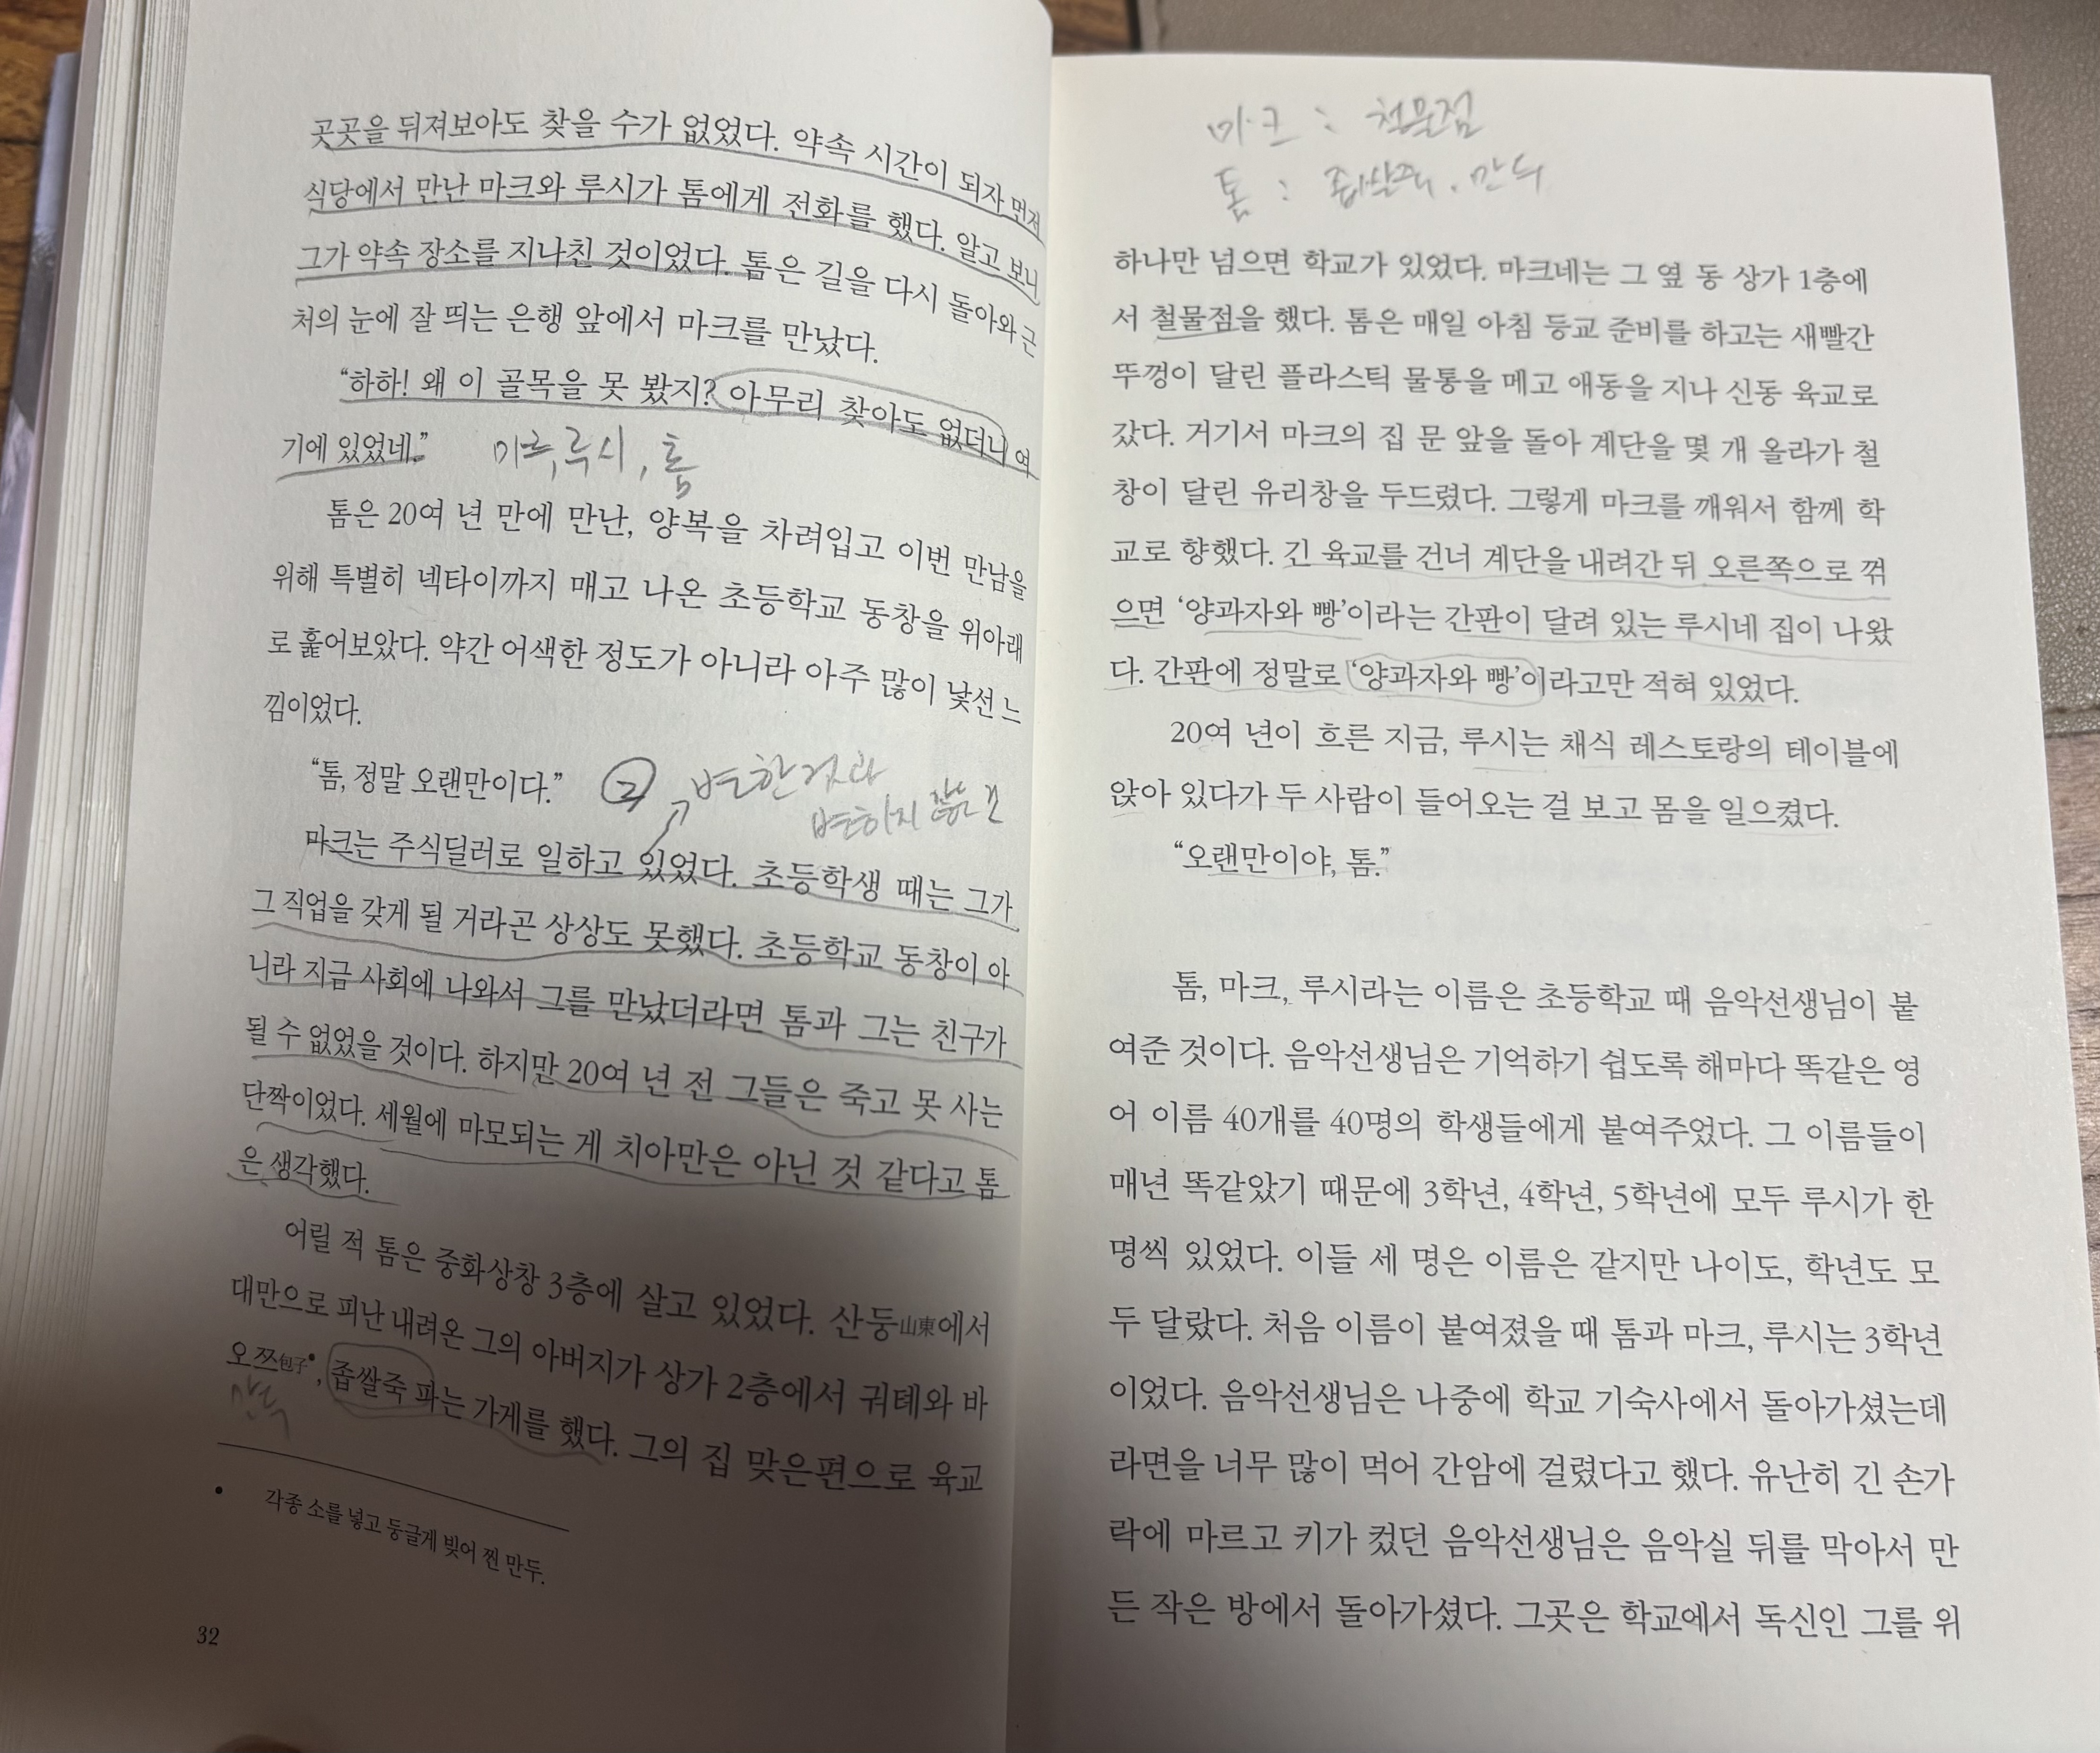 곳곳을 뒤져보아도 찾을 수가 없었다. 약속 시간이 되자 먼저
식당에서 만난 마크와 루시가 톰에게 전화를 했다. 알고 보니
그가 약속 장소를 지나친 것이었다. 톰은 길을 다시 돌아와 근
처의 눈에 잘 띄는 은행 앞에서 마크를 만났다.
“하하! 왜 이 골목을 못 봤지? 아무리 찾아도 없더니 여
기에 있었네.” 마크, 루시, 톰
톰은 20여 년 만에 만난, 양복을 차려입고 이번 만남을
위해 특별히 넥타이까지 매고 나온 초등학교 동창을 위아래
로 훑어보았다. 약간 어색한 정도가 아니라 아주 많이 낯선 느
낌이었다.
“톰, 정말 오랜만이다.” ② 변한 것과
변하지 않는 것
마크는 주식딜러로 일하고 있었다. 초등학생 때는 그가
그 직업을 갖게 될 거라곤 상상도 못했다. 초등학교 동창이 아
니라 지금 사회에 나와서 그를 만났더라면 톰과 그는 친구가
될 수 없었을 것이다. 하지만 20여 년 전 그들은 죽고 못 사는
단짝이었다. 세월에 마모되는 게 치아만은 아닌 것 같다고 톰
은 생각했다.
어릴 적 톰은 중화상창 3층에 살고 있었다. 산둥山東에서
대만으로 피난 내려온 그의 아버지가 상가 2층에서 궈톄와 바
오쯔包子•, 좁쌀죽 파는 가게를 했다. 그의 집 맞은편으로 육교
만두
• 각종 소를 넣고 둥글게 빚어 찐 만두.
32
마크 : 철물점
톰 : 좁쌀죽, 만두
하나만 넘으면 학교가 있었다. 마크네는 그 옆 동 상가 1층에
서 철물점을 했다. 톰은 매일 아침 등교 준비를 하고는 새빨간
뚜껑이 달린 플라스틱 물통을 메고 애동을 지나 신동 육교로
갔다. 거기서 마크의 집 문 앞을 돌아 계단을 몇 개 올라가 철
창이 달린 유리창을 두드렸다. 그렇게 마크를 깨워서 함께 학
교로 향했다. 긴 육교를 건너 계단을 내려간 뒤 오른쪽으로 꺾
으면 ‘양과자와 빵’이라는 간판이 달려 있는 루시네 집이 나왔
다. 간판에 정말로 ‘양과자와 빵’이라고만 적혀 있었다.
20여 년이 흐른 지금, 루시는 채식 레스토랑의 테이블에
앉아 있다가 두 사람이 들어오는 걸 보고 몸을 일으켰다.
“오랜만이야, 톰.”
톰, 마크, 루시라는 이름은 초등학교 때 음악선생님이 붙
여준 것이다. 음악선생님은 기억하기 쉽도록 해마다 똑같은 영
어 이름 40개를 40명의 학생들에게 붙여주었다. 그 이름들이
매년 똑같았기 때문에 3학년, 4학년, 5학년에 모두 루시가 한
명씩 있었다. 이들 세 명은 이름은 같지만 나이도, 학년도 모
두 달랐다. 처음 이름이 붙여졌을 때 톰과 마크, 루시는 3학년
이었다. 음악선생님은 나중에 학교 기숙사에서 돌아가셨는데
라면을 너무 많이 먹어 간암에 걸렸다고 했다. 유난히 긴 손가
락에 마르고 키가 컸던 음악선생님은 음악실 뒤를 막아서 만
든 작은 방에서 돌아가셨다. 그곳은 학교에서 독신인 그를 위